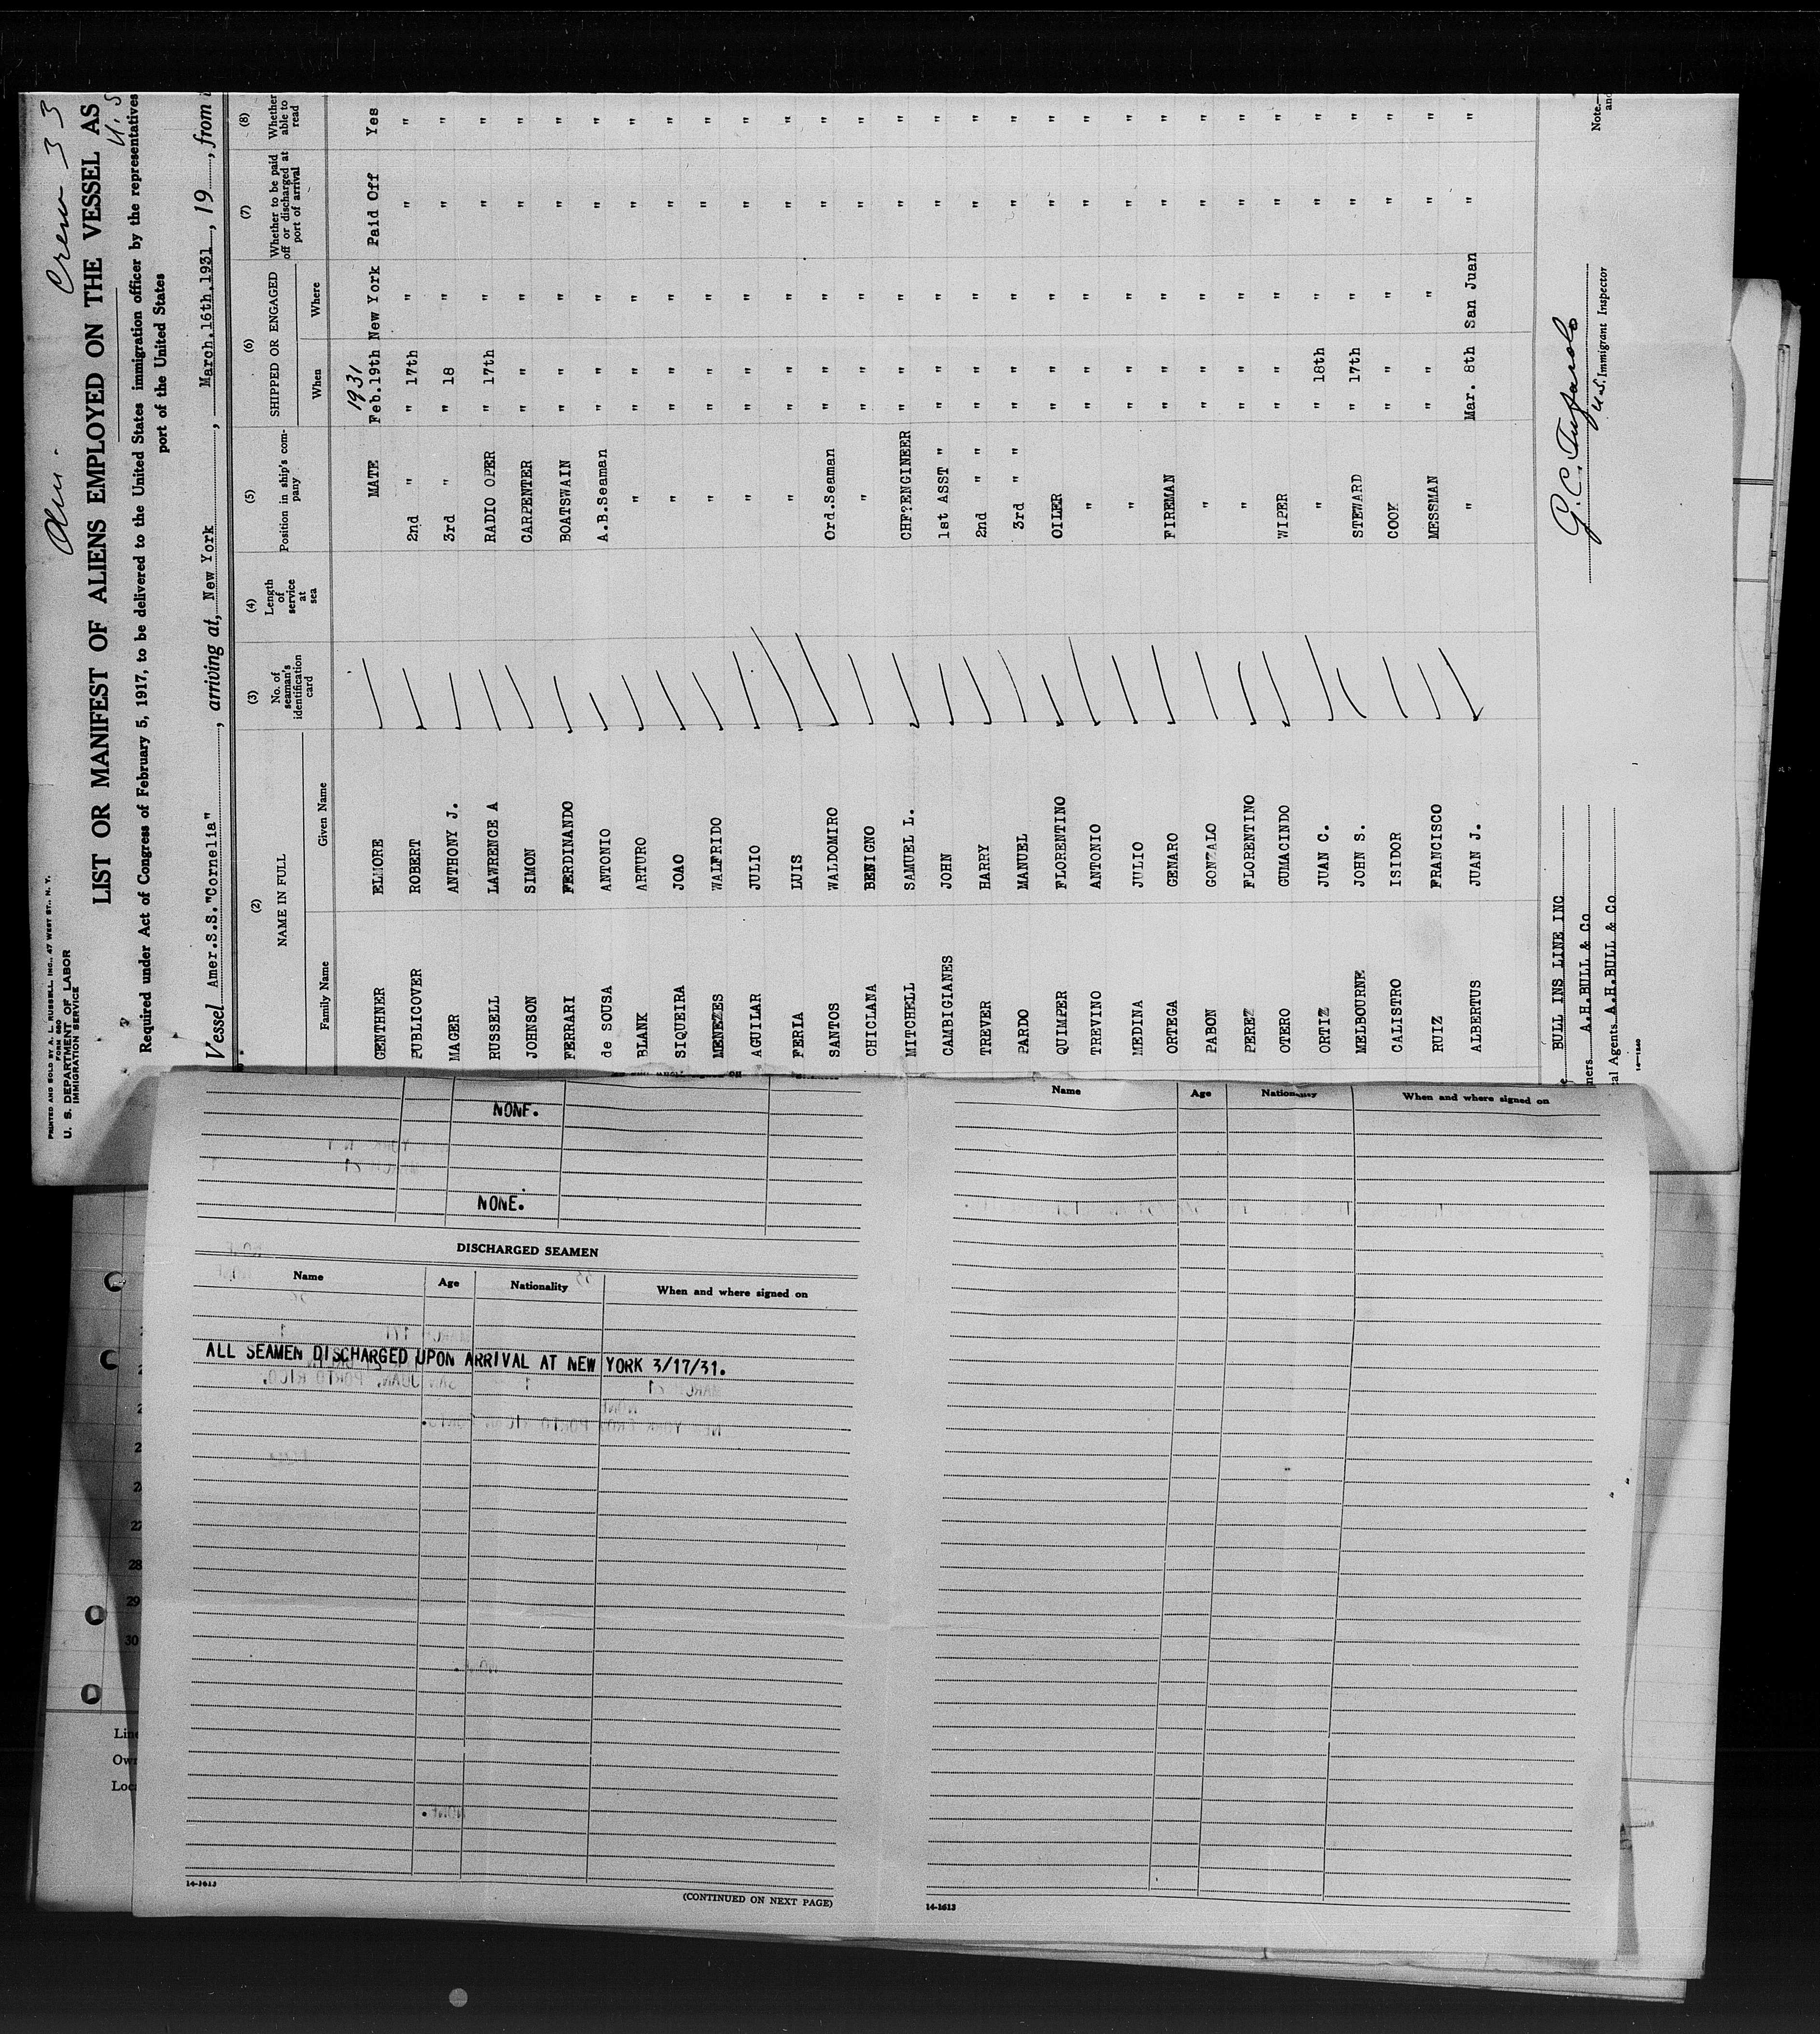 Crew 33
PRINTED AND SOLD BY A. L. RUSSELL, INC., 47 WEST ST., N. Y.
FORM 680
U. S. DEPARTMENT OF LABOR
IMMIGRATION SERVICE
LIST OR MANIFEST OF ALIENS EMPLOYED ON THE VESSEL AS
U. S
Required under Act of Congress of February 5, 1917, to be delivered to the United States immigration officer by the representatives
port of the United States
Vessel Amer.S.S."Cornelia", arriving at, New York, March.16th.1931, 19, from
(2) (3) (4) (5) (6) (7) (8)
NAME IN FULL No. of seaman's identification card Length of service at sea Position in ship's company SHIPPED OR ENGAGED Whether to be paid off or discharged at port of arrival Whether able to read
Family Name Given Name When Where
1931
GENTHNER ELMORE MATE Feb.19th New York Paid Off Yes
PUBLICOVER ROBERT 2nd " " 17th " " "
MAGER ANTHONY J. 3rd " " 18 " " "
RUSSELL LAWRENCE A RADIO OPER " 17th " " "
JOHNSON SIMON CARPENTER " " " " "
FERRARI FERDINANDO BOATSWAIN " " " " "
de SOUSA ANTONIO A.B.Seaman " " " " "
BLANK ARTURO " " " " " "
SIQUEIRA JOAO " " " " " "
MENEZES WALFRIDO " " " " " "
AGUILAR JULIO " " " " " "
FERIA LUIS " " " " " "
SANTOS WALDOMIRO Ord.Seaman " " " " "
CHICLANA BENIGNO " " " " " "
MITCHELL SAMUEL L. CHF?ENGINEER " " " " "
CAMBIGIANES JOHN 1st ASST " " " " " "
TREVER HARRY 2nd " " " " " " "
PARDO MANUEL 3rd " " " " " " "
QUIMPER FLORENTINO OILER " " " " "
TREVINO ANTONIO " " " " " "
MEDINA JULIO " " " " " "
ORTEGA GENARO FIREMAN " " " " "
PABON GONZALO " " " " " "
PEREZ FLORENTINO " " " " " "
OTERO GUMACINDO WIPER " " " " "
ORTIZ JUAN C. " " 18th " " "
MELBOURNE JOHN S. STEWARD " 17th " " "
CALISTRO ISIDOR COOK " " " " "
RUIZ FRANCISCO MESSMAN " " " " "
ALBERTUS JUAN J. " Mar. 8th San Juan " "
BULL INS LINE INC
ners A.H.BULL & Co
al Agents A.H.BULL & Co
14-1240
U.S. Immigrant Inspector
Note.—
and
NONE.
NONE.
DISCHARGED SEAMEN
Name Age Nationality When and where signed on
ALL SEAMEN DISCHARGED UPON ARRIVAL AT NEW YORK 3/17/31.
14-1613
(CONTINUED ON NEXT PAGE)
Name Age Nationality When and where signed on
14-1613
27
28
29
30
Line
Own
Loca